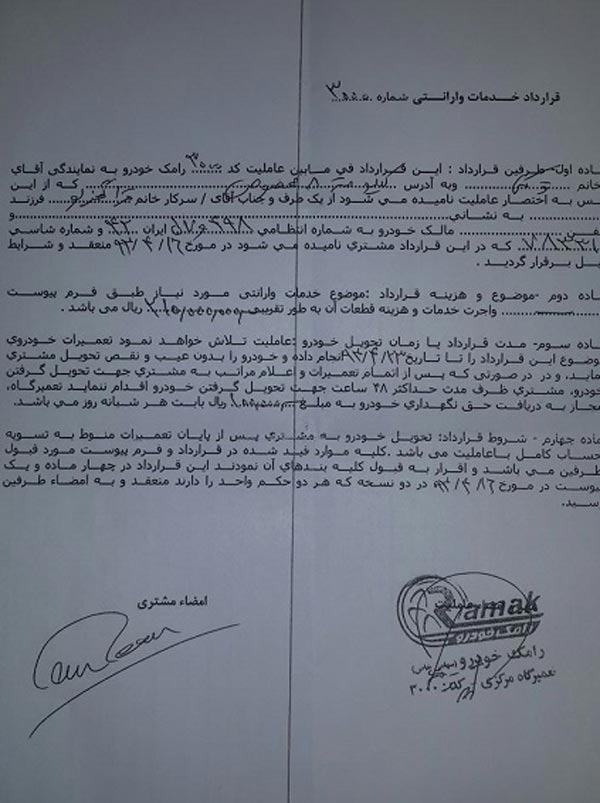 قرارداد خدمات وارانتی شماره ۳۰۰۰
ماده اول- طرفین قرارداد : این قرارداد فی مابین عاملیت کد ۳۰۰۰ رامک خودرو به نمایندگی آقای
خانم وبه آدرس که از این
پس به اختصار عاملیت نامیده می شود از یک طرف و جناب آقای / سرکار خانم فرزند
به نشانی و
تلفن مالک خودرو به شماره انتظامی ایران و شماره شاسی
که در این قرارداد مشتری نامیده می شود در مورخ ۹۳/۴/۱۶ منعقد و شرایط
ذیل برقرار گردید .
ماده دوم -موضوع و هزینه قرارداد :موضوع خدمات وارانتی مورد نیاز طبق فرم پیوست
واجرت خدمات و هزینه قطعات آن به طور تقریبی ریال می باشد .
ماده سوم- مدت قرارداد یا زمان تحویل خودرو :عاملیت تلاش خواهد نمود تعمیرات خودروی
موضوع این قرارداد را تا تاریخ ۹۳/۴/۲۳ انجام داده و خودرو را بدون عیب و نقص تحویل مشتری
نماید، و در در صورتی که پس از اتمام تعمیرات و اعلام مراتب به مشتری جهت تحویل گرفتن
خودرو، مشتری ظرف مدت حداکثر ۴۸ ساعت جهت تحویل گرفتن خودرو اقدام ننماید تعمیرگاه،
مجاز به دریافت حق نگهداری خودرو به مبلغ ریال بابت هر شبانه روز می باشد.
ماده چهارم - شروط قرارداد: تحویل خودرو به مشتری پس از پایان تعمیرات منوط به تسویه
حساب کامل باعاملیت می باشد .کلیه موارد قید شده در قرارداد و فرم پیوست مورد قبول
طرفین می باشد و اقرار به قبول کلیه بندهای آن نمودند این قرارداد در چهار ماده و یک
پیوست در مورخ ۹۳/۴/۱۶ در دو نسخه که هر دو حکم واحد را دارند منعقد و به امضاء طرفین
رسید.
امضاء مشتری
عاملیت
Ramak
رامک خودرو
تعمیرگاه مرکزی کد: ۳۰۰۰